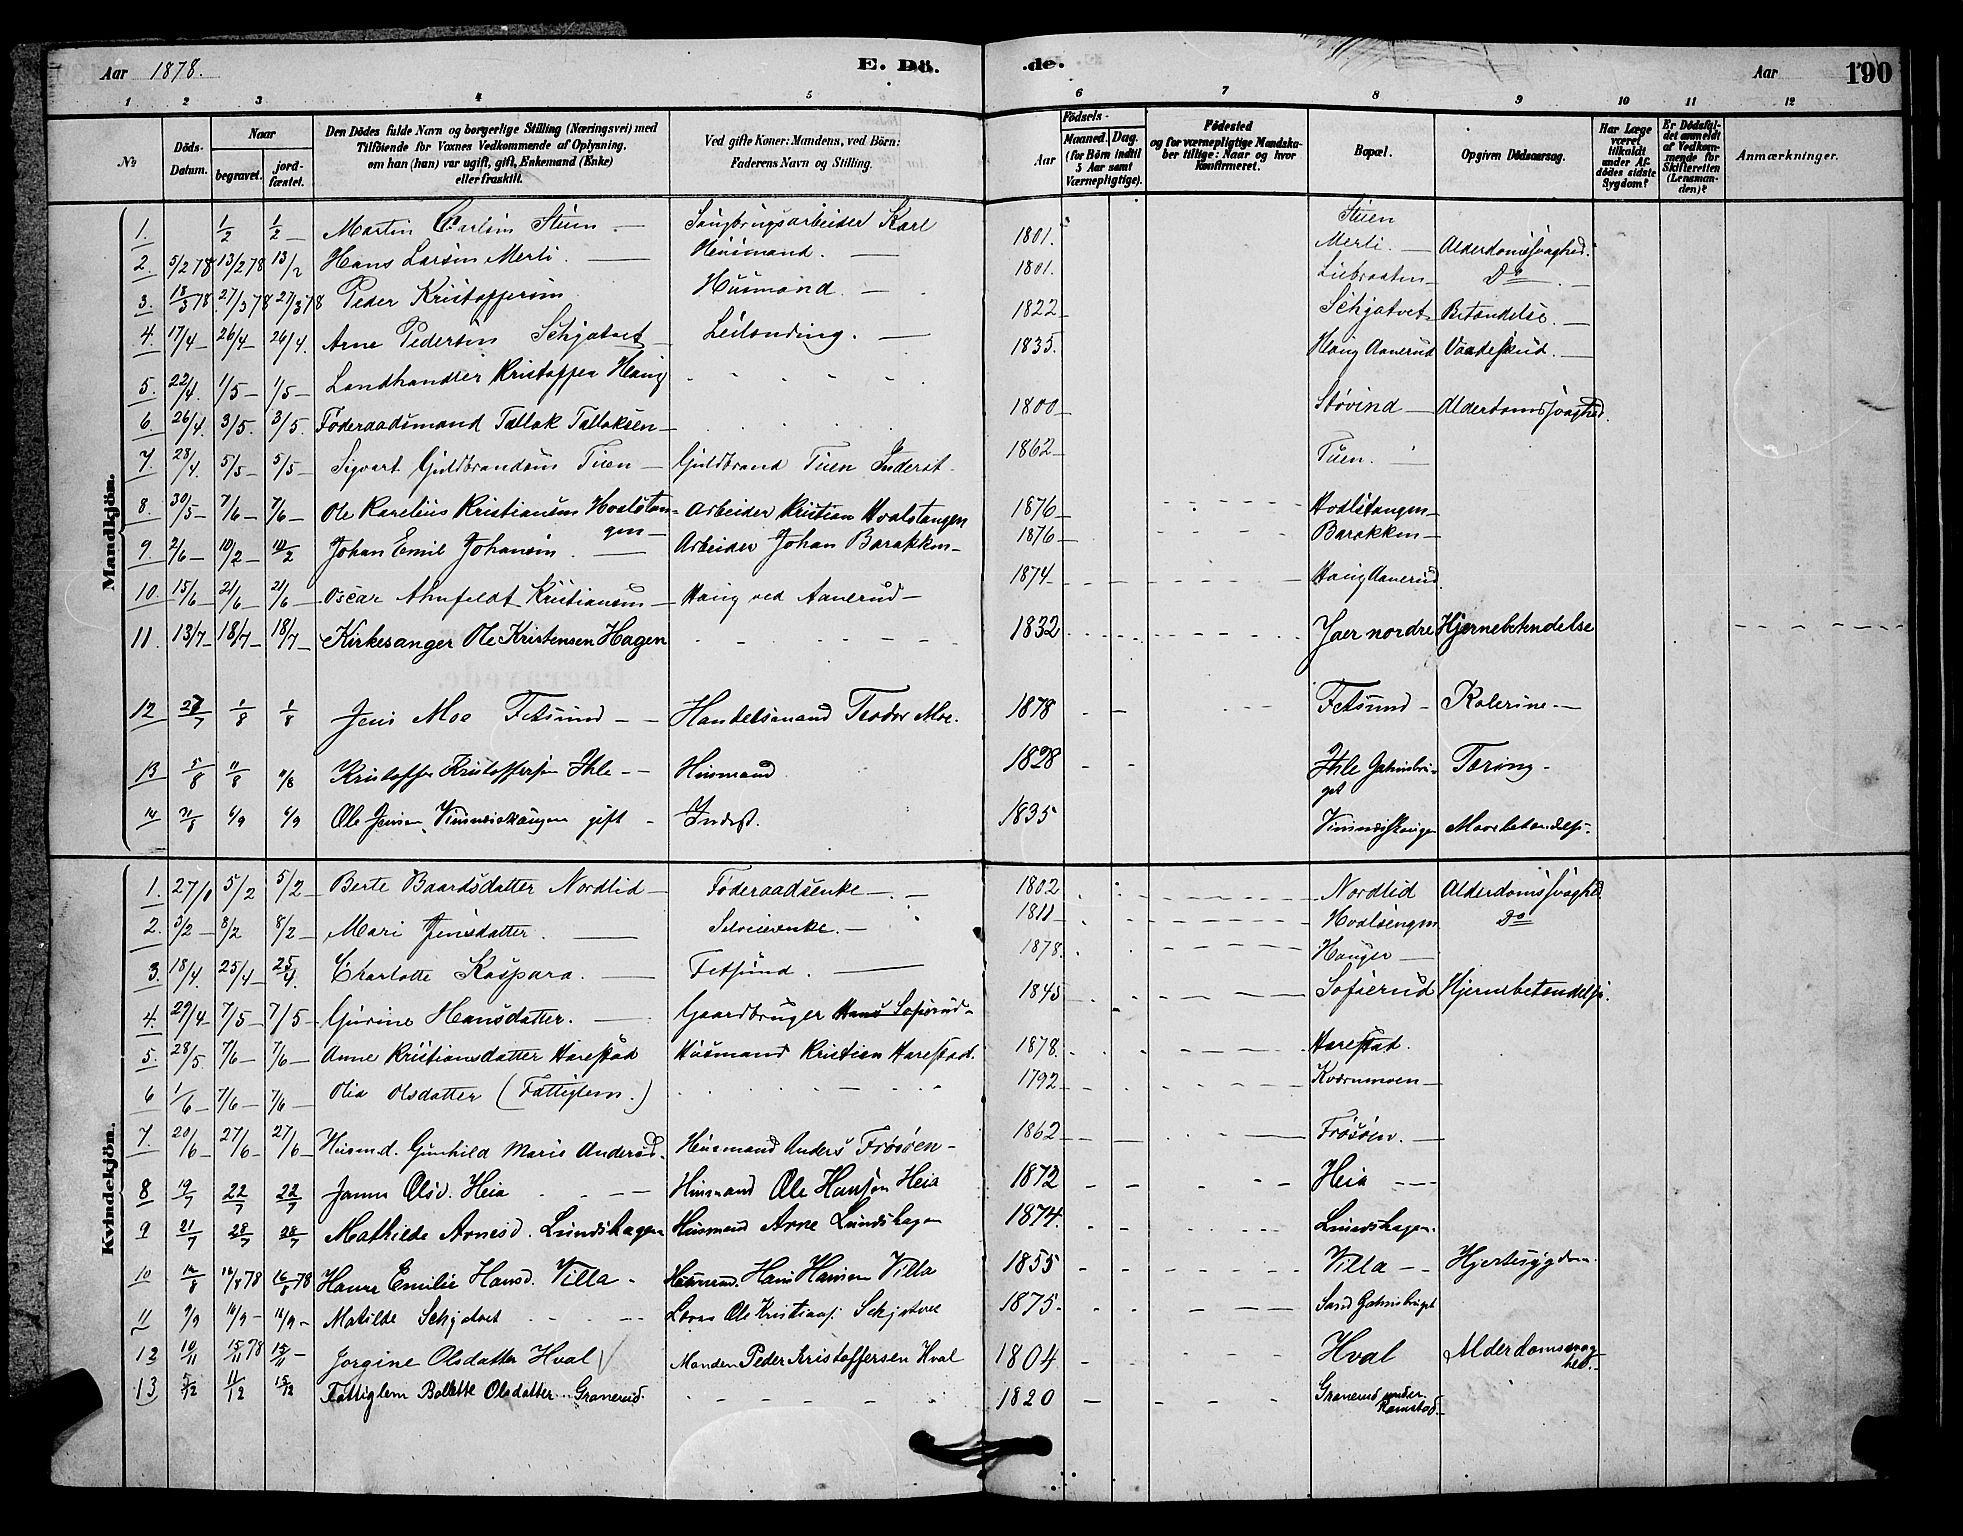 Aar 1878. E. Dö. de. Aar 190
1 2 3 4 5 6 7 8 9 10 11 12
No Döds-Datum. Naar begravet. jordfæstet. Den Dödes fulde Navn og borgerlige Stilling (Næringsvei) med Tilföiende for Voxnes Vedkommende af Oplysning, om han (hun) var ugift, gift, Enkemand (Enke) eller fraskilt. Ved gifte Koner: Mandens, ved Börn: Faderens Navn og Stilling. Födsels- Aar Maaned. Dag. (for Börn indtil 5 Aar samt Værnepligtige). Födested og for værnepligtige Mandskaber tillige: Naar og hvor Konfirmeret. Bopæl. Opgiven Dödsaarsag. Har Læge været tilkaldt under Afdödes sidste Sygdom? Er Dödsfaldet anmeldt af Vedkommende for Skifteretten (Lensmanden)? Anmærkninger.
Mandkjön.
1. 1/2 1/2 Martin Carlsen Stuen Saugbrugsarbeider Karl Stuen
2. 5/2 78 13/2 78 13/2 Hans Larsen Merli. Husmand. 1801. Merli. Alderdomssvaghed.
3. 18/3 78 27/3 78 27/3 78 Peder Kristoffersen Husmand. 1801. Liebraaten Do
4. 17/4 26/4 26/4. Arne Pedersen Schjatvet Leilending. 1822 Schjatvet Betændelse.
5. 22/4. 1/5 1/5 Landhandler Kristoffer Haug 1835. Haug Aanerud Vaadeskud.
6. 26/4. 3/5. 3/5. Föderaadsmand Tallak Tallaksen 1800 Støvind Alderdomssvaghed.
7. 28/4. 5/5 5/5 Sigvart Guldbrandsen Tuen Guldbrand Tuen Inderst. 1862 Tuen.
8. 30/5 7/6 7/6 Ole Karelius Kristiansen Hvalstangen Arbeider Kristian Hvalstangen 1876 Hvalstangen
9. 2/6 10/2 10/2 Johan Emil Johansen. Arbeider Johan Barakken 1876 Barakken
10. 15/6 21/6 21/6 Oscar Ahnfeldt Kristiansen Haug ved Aanerud 1874 Haug Aanerud.
11. 13/7 18/7 18/7 Kirkesanger Ole Kristensen Hagen 1832 Jaer nordre Hjernebetendelse
12 27/7 1/8 1/8 Jens Moe Fetsund Handelsmand Teodor Moe. 1878 Fetsund Kolerine.
13 5/8 11/8 11/8 Kristoffer Kristoffersen Ihle Husmand 1828 Ihle Tæring
14 31/8 6/9 6/9 Ole Jensen Vinnesskaugen gift Inderst. 1835 Vinnesskaugen Mavebetændelse.
Kvindekjön.
1. 27/1 5/2 5/2 Berte Baardsdatter Nordlid Föderaadsenke 1802 Nordlid Alderdomssvaghed.
2. 3/2 8/2 8/2 Mari Jensdatter. Selveierenke. 1811 Hvalsengen Do
3. 18/4. 25/4 25/4. Charlotte Kaspara. Fetsund. 1878. Hauger
4. 29/4 7/5 7/5 Gurine Hansdatter. Gaardbruger Hans Sofierud 1845 Sofierud Hjernebetændelse.
5. 28/5 7/6 7/6 Anne Kristiansdatter Harestad Husmand Kristian Harestad. 1878. Harestad.
6 1/6 7/6 7/6 Olia Olsdatter (Fattiglem.) 1792 Kværnmoen
7. 20/6 27/6 27/6 Husmd. Gunhild Marie Andersd. Husmand Anders Frösöen 1862 Frösöen.
8 19/7 22/7 22/7 Janna Olsd. Heia Husmand Ole Hansen Heia 1872 Heia
9 21/7 28/7 28/7 Mathilde Arnesd. Lundshagen Husmand Arne Lundshagen 1874. Lundshagen.
10 12/8 16/8 78 16/8 78 Hanna Emilie Hansd. Villa Husmd. Hans Hansen Villa 1855 Villa Hjertesygdom
11 9/9 14/9 14/9 Matilde Schjatvet Ole Kristians. Schjatvet 1875 Sand
12 10/11 15/11 78 15/11 Jorgine Olsdatter Hval Manden Peder Kristoffersen Hval 1804 Hval Alderdomssvaghed.
13 5/12 11/12 15/12 Fattiglem Bollette Olsdatter Granerud. 1820 Granerud under Ramstad.